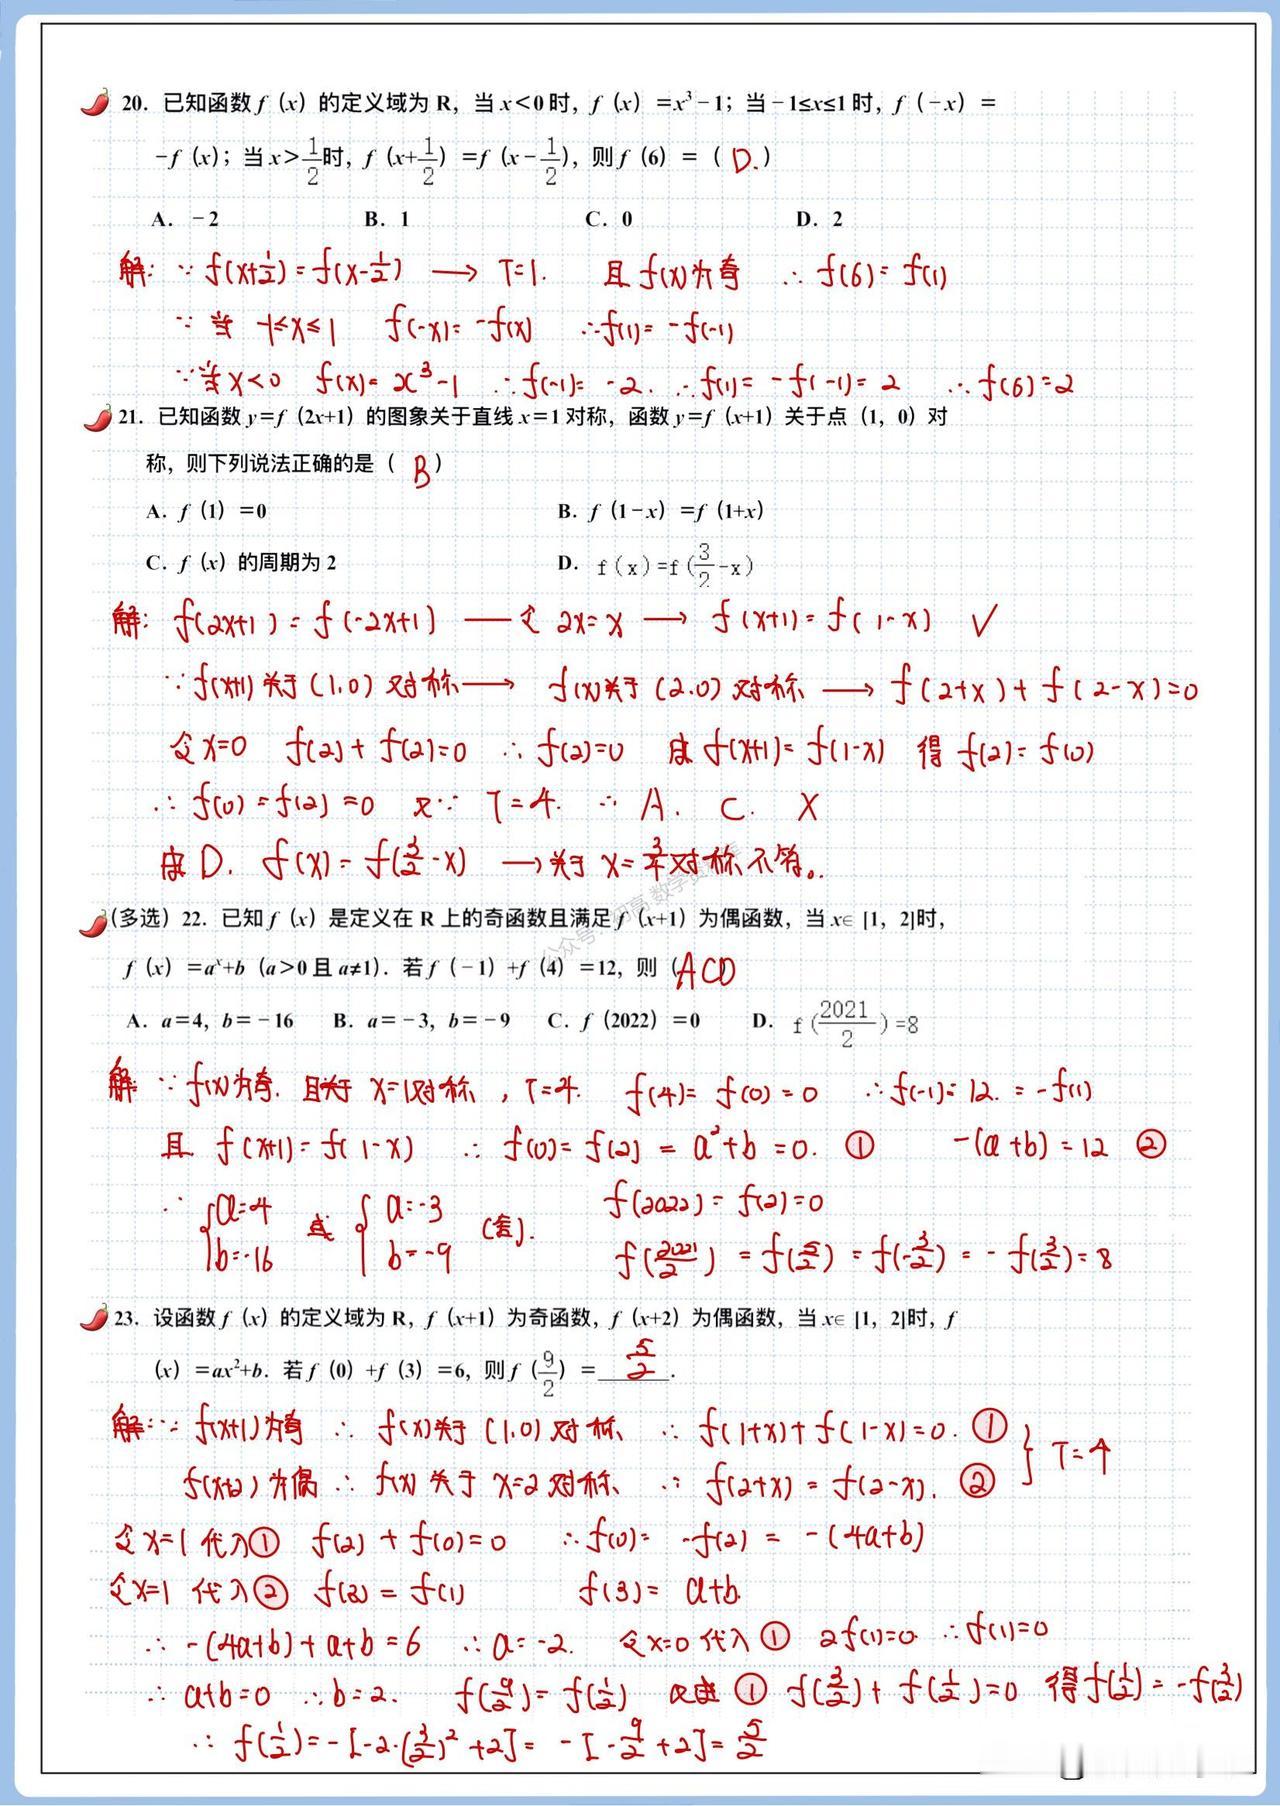 20. 已知函数 f (x) 的定义域为 R，当 x<0 时，f (x) =x³－1；当－1≤x≤1 时，f (－x) =
-f (x)；当 x>1/2时，f (x+1/2) =f (x-1/2)，则 f (6) = ( D. )
A. －2 B. 1 C. 0 D. 2
解: ∵ f(x+1/2)=f(x-1/2) → T=1. 且 f(x)为奇 ∴ f(6)= f(1)
∵ 当 -1≤x≤1 f(-x)= -f(x) ∴f(1)= -f(-1)
∵当x<0 f(x)= x³-1 ∴f(-1)= -2. ∴f(1)= -f(-1)= 2 ∴f(6)=2
21. 已知函数 y=f (2x+1) 的图象关于直线 x=1 对称，函数 y=f (x+1) 关于点 (1, 0) 对
称，则下列说法正确的是 ( B )
A. f (1) =0 B. f (1－x) =f (1+x)
C. f (x) 的周期为 2 D. f(x)=f(3/2-x)
解: f(2x+1)= f(-2x+1) — 令 2x=x → f(x+1)= f(1-x) ✓
∵f(x+1)关于(1,0)对称→ f(x)关于(2,0)对称 → f(2+x)+ f(2-x)=0
令x=0 f(2)+ f(2)=0 ∴ f(2)=0 由 f(x+1)= f(1-x) 得 f(2)= f(0)
∴ f(0)=f(2)=0 又∵ T=4. ∴ A. C. X
由D. f(x)= f(3/2-x) →关于 x=3/4对称不符。
公众号：初高数学资料库
(多选) 22. 已知 f (x) 是定义在 R 上的奇函数且满足 f (x+1) 为偶函数，当 x∈ [1, 2]时，
f (x) =aˣ+b (a>0 且 a≠1). 若 f (－1) +f (4) =12，则 (ACD
A. a=4, b=－16 B. a=－3, b=－9 C. f (2022) =0 D. f(2021/2)=8
解 ∵ f(x)为奇. 且关于 x=1对称, T=4. f(4)= f(0)=0 ∴f(-1)= 12. = -f(1)
且 f(x+1)= f(1-x) ∴ f(0)= f(2) = a²+b =0. ① -(a+b)=12 ②
∴ {a=4 b=-16 或 {a=-3 b=-9 (舍). f(2022)= f(2)=0
f(2021/2) = f(5/2) = f(-3/2) = - f(3/2)= 8
23. 设函数 f (x) 的定义域为 R，f (x+1) 为奇函数，f (x+2) 为偶函数，当 x∈ [1, 2]时，f
(x) =ax²+b. 若 f (0) +f (3) =6，则 f (9/2) = 5/2 .
解∵ f(x+1)为奇 ∴ f(x)关于(1,0)对称 ∴ f(1+x)+f(1-x)=0. ① } T=4
f(x+2)为偶 ∴ f(x)关于 x=2对称 ∴ f(2+x)= f(2-x). ②
令x=1代入① f(2)+f(0)=0 ∴f(0)= -f(2) = -(4a+b)
令x=1 代入② f(3)= f(1) f(3)= a+b.
∴ -(4a+b)+a+b=6 ∴a=-2. 令x=0代入① 2f(1)=0 ∴f(1)=0
∴ a+b=0 ∴b=2. f(9/2)= f(1/2) 又由① f(3/2)+f(1/2)=0 得f(1/2)= -f(3/2)
∴ f(1/2)=-[-2·(3/2)²+2]= -[-9/2+2]= 5/2